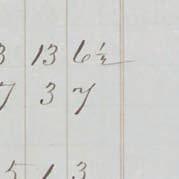 3 13 6½
7 3 7
5 1 3